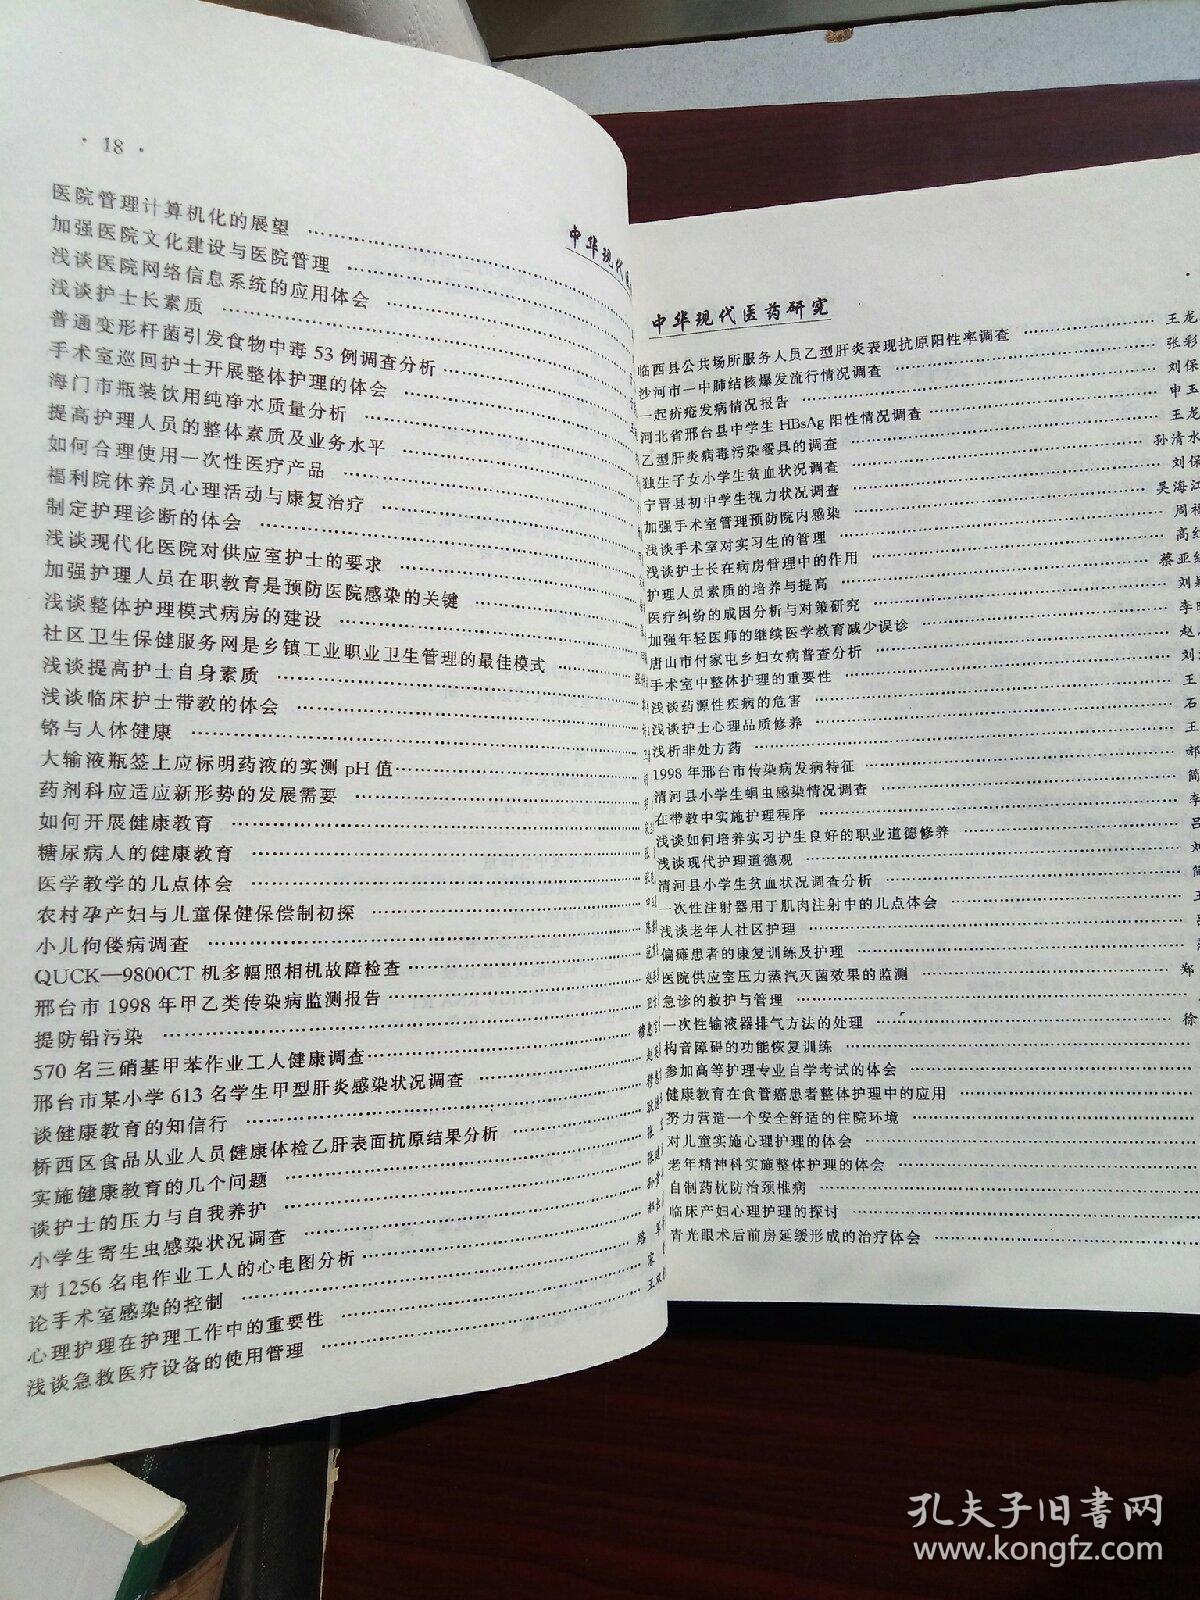 · 18 ·
中华现代医
医院管理计算机化的展望
加强医院文化建设与医院管理
浅谈医院网络信息系统的应用体会
浅谈护士长素质
普通变形杆菌引发食物中毒53例调查分析
手术室巡回护士开展整体护理的体会
海门市瓶装饮用纯净水质量分析
提高护理人员的整体素质及业务水平
如何合理使用一次性医疗产品
福利院休养员心理活动与康复治疗
制定护理诊断的体会
浅谈现代化医院对供应室护士的要求
加强护理人员在职教育是预防医院感染的关键
浅谈整体护理模式病房的建设
社区卫生保健服务网是乡镇工业职业卫生管理的最佳模式
浅谈提高护士自身素质
浅谈临床护士带教的体会
铬与人体健康
大输液瓶签上应标明药液的实测pH值
药剂科应适应新形势的发展需要
如何开展健康教育
糖尿病人的健康教育
医学教学的几点体会
农村孕产妇与儿童保健保偿制初探
小儿佝偻病调查
QUCK—9800CT机多幅照相机故障检查
邢台市1998年甲乙类传染病监测报告
提防铅污染
570名三硝基甲苯作业工人健康调查
邢台市某小学613名学生甲型肝炎感染状况调查
谈健康教育的知信行
桥西区食品从业人员健康体检乙肝表面抗原结果分析
实施健康教育的几个问题
谈护士的压力与自我养护
小学生寄生虫感染状况调查
对1256名电作业工人的心电图分析
论手术室感染的控制
心理护理在护理工作中的重要性
浅谈急救医疗设备的使用管理
中华现代医药研究
临西县公共场所服务人员乙型肝炎表现抗原阳性率调查 王龙
沙河市一中肺结核爆发流行情况调查 张彩
一起疥疮发病情况报告 刘保
河北省邢台县中学生HBsAg阳性情况调查 申玉
乙型肝炎病毒污染餐具的调查 王龙
独生子女小学生贫血状况调查 孙清水
宁晋县初中学生视力状况调查 刘保
加强手术室管理预防院内感染 吴海江
浅谈手术室对实习生的管理 周
浅谈护士长在病房管理中的作用 高
护理人员素质的培养与提高 蔡亚
医疗纠纷的成因分析与对策研究 刘
加强年轻医师的继续医学教育减少误诊 李
唐山市付家屯乡妇女病普查分析 赵
手术室中整体护理的重要性 刘
浅谈药源性疾病的危害 王
浅谈护士心理品质修养 石
浅析非处方药 王
1998年邢台市传染病发病特征 郝
清河县小学生蛔虫感染情况调查 简
在带教中实施护理程序 李
浅谈如何培养实习护生良好的职业道德修养 吕
浅谈现代护理道德观 刘
清河县小学生贫血状况调查分析 简
一次性注射器用于肌肉注射中的几点体会
浅谈老年人社区护理
偏瘫患者的康复训练及护理
医院供应室压力蒸汽灭菌效果的监测 郑
急诊的救护与管理
一次性输液器排气方法的处理 徐
构音障碍的功能恢复训练
参加高等护理专业自学考试的体会
健康教育在食管癌患者整体护理中的应用
努力营造一个安全舒适的住院环境
对儿童实施心理护理的体会
老年精神科实施整体护理的体会
自制药枕防治颈椎病
临床产妇心理护理的探讨
青光眼术后前房延缓形成的治疗体会
孔夫子旧书网
www.kongfz.com